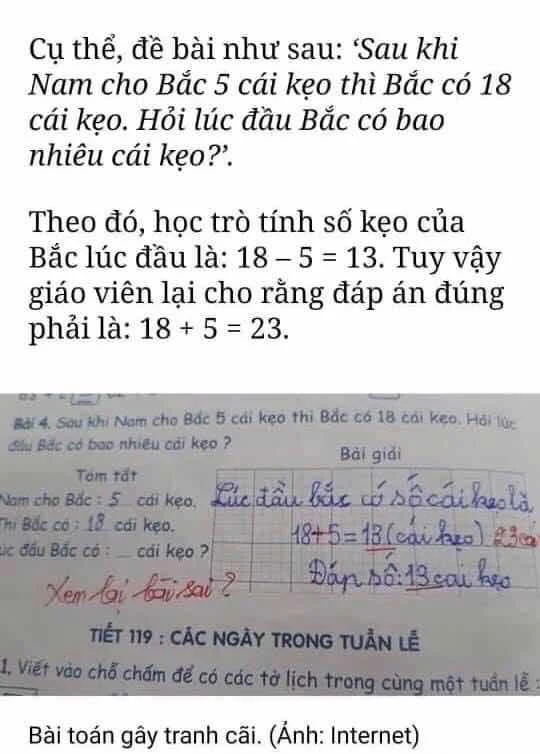 Cụ thể, đề bài như sau: ‘Sau khi
Nam cho Bắc 5 cái kẹo thì Bắc có 18
cái kẹo. Hỏi lúc đầu Bắc có bao
nhiêu cái kẹo?’.
Theo đó, học trò tính số kẹo của
Bắc lúc đầu là: 18 – 5 = 13. Tuy vậy
giáo viên lại cho rằng đáp án đúng
phải là: 18 + 5 = 23.
Bài 4. Sau khi Nam cho Bắc 5 cái kẹo thì Bắc có 18 cái kẹo. Hỏi lúc
đầu Bắc có bao nhiêu cái kẹo ?
Bài giải
Tóm tắt
Nam cho Bắc : 5 cái kẹo.
Lúc đầu bắc có số cái kẹo là
Thì Bắc có : 18 cái kẹo.
18+5=13 (cái kẹo) 23
úc đầu Bắc có : ... cái kẹo ?
Đáp số: 13 cái kẹo
Xem lại bài sai ?
TIẾT 119 : CÁC NGÀY TRONG TUẦN LỄ
1. Viết vào chỗ chấm để có các tờ lịch trong cùng một tuần lễ :
Bài toán gây tranh cãi. (Ảnh: Internet)